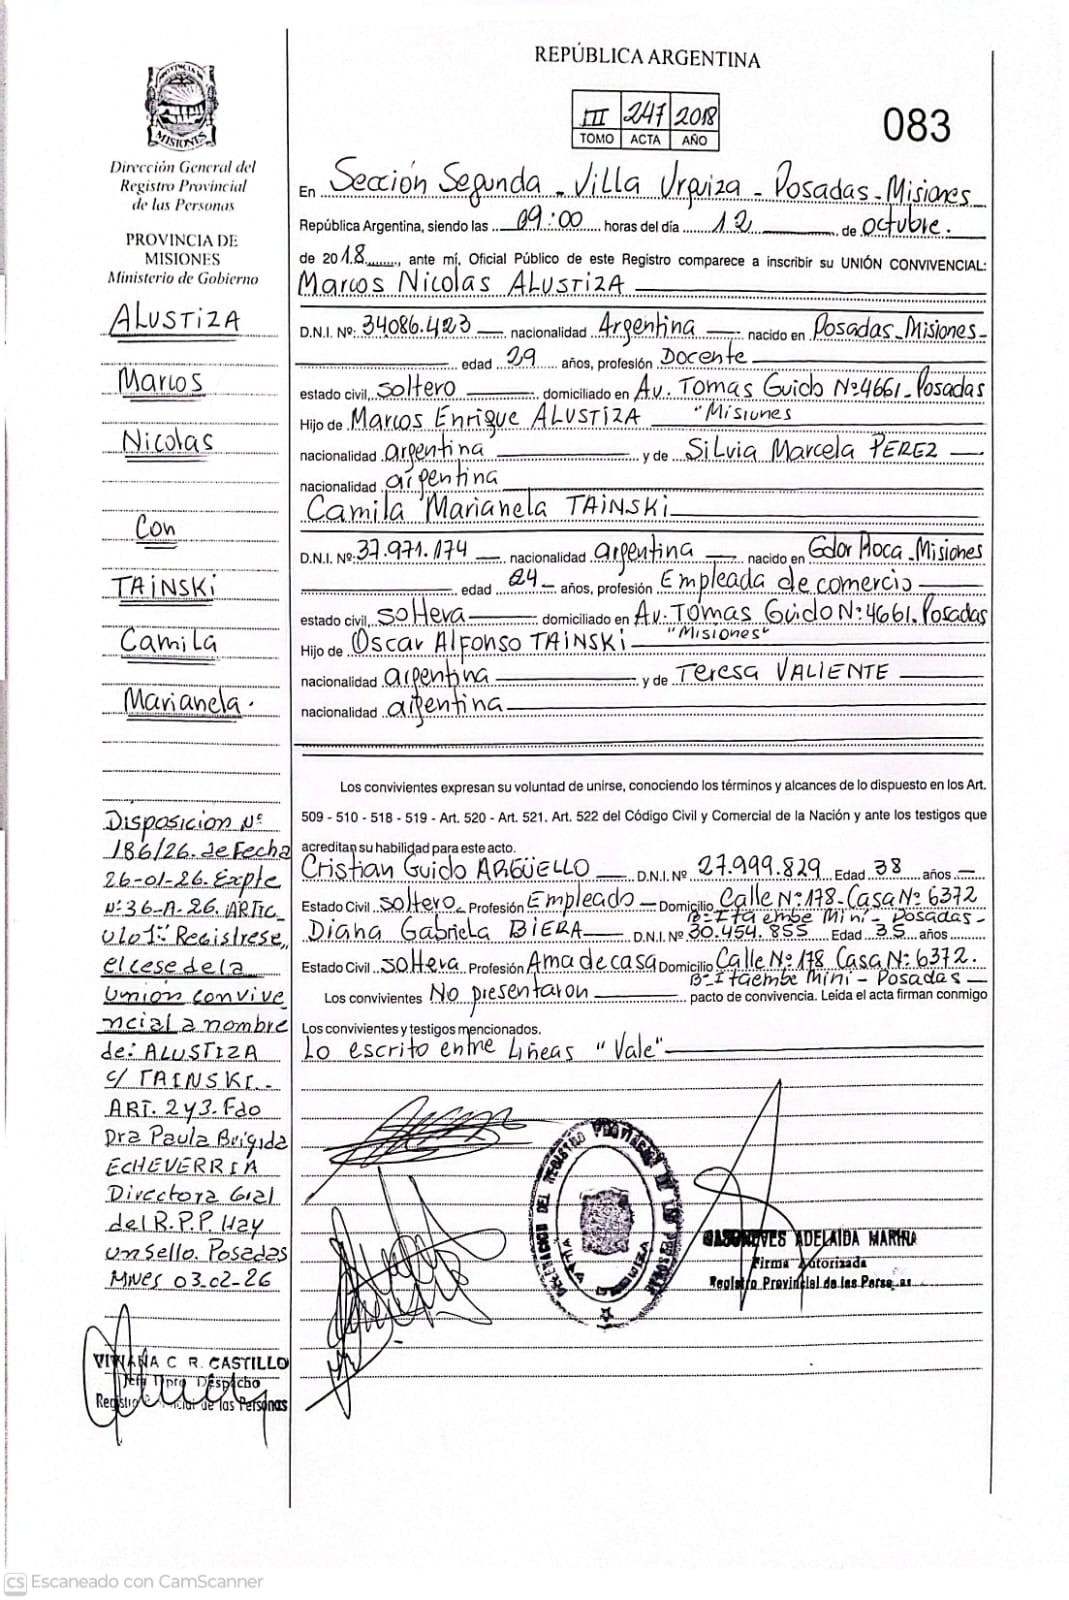 REPÚBLICA ARGENTINA
III 247 2018
TOMO ACTA AÑO
083
PROVINCIA DE
MISIONES
Dirección General del
Registro Provincial
de las Personas
PROVINCIA DE
MISIONES
Ministerio de Gobierno
ALUSTIZA
Marcos
Nicolas
Con
TAINSKI
Camila
Marianela.
Disposicion Nº
186/26. de Fecha
26-01-26. Expte
Nº: 36-A-26. ARTIC_
ULO 1º: Registrese,
el cese de la
Unión convive
ncial a nombre
de: ALUSTIZA
c/ TAINSKI.-
ART. 2 y 3. Fdo
Dra Paula Brigida
ECHEVERRIA
Directora Gral
del R.P.P. Hay
un sello. Posadas
Mnes 03.02-26
VIVIANA C R. CASTILLO
Jefa Dpto Despacho
Registro Provincial de las Personas
En Sección Segunda - Villa Urquiza - Posadas - Misiones
República Argentina, siendo las 09:00 horas del día 12 de octubre.
de 2018, ante mí, Oficial Público de este Registro comparece a inscribir su UNIÓN CONVIVENCIAL:
Marcos Nicolas ALUSTIZA
D.N.I. Nº: 34086.423 nacionalidad Argentina nacido en Posadas - Misiones -
edad 29 años, profesión Docente
estado civil, soltero domiciliado en Av. Tomas Guido Nº: 4661. Posadas
"Misiones
Hijo de Marcos Enrique ALUSTIZA
nacionalidad argentina y de Silvia Marcela PEREZ
nacionalidad argentina
Camila Marianela TAINSKI
D.N.I. Nº: 37.971.174 nacionalidad argentina nacido en Gdor Roca - Misiones
edad 24 años, profesión Empleada de comercio
estado civil, soltera domiciliado en Av. Tomas Guido N: 4661. Posadas
"Misiones"
Hijo de Oscar Alfonso TAINSKI
nacionalidad argentina y de Teresa VALIENTE
nacionalidad argentina
Los convivientes expresan su voluntad de unirse, conociendo los términos y alcances de lo dispuesto en los Art.
509 - 510 - 518 - 519 - Art. 520 - Art. 521. Art. 522 del Código Civil y Comercial de la Nación y ante los testigos que
acreditan su habilidad para este acto.
Cristian Guido ARGÜELLO D.N.I. Nº 27.999.829 Edad 38 años
Estado Civil soltero Profesión Empleado Domicilio Calle Nº: 178 - Casa Nº 6372
Bº Itaembe Mini - Posadas -
Diana Gabriela BIERA D.N.I. Nº 30.454.855 Edad 35 años
Estado Civil soltera Profesión Ama de casa Domicilio Calle Nº: 178 Casa Nº: 6372.
Bº Itaembe Mini - Posadas -
Los convivientes No presentaron pacto de convivencia. Leída el acta firman conmigo
Los convivientes y testigos mencionados.
Lo escrito entre Líneas "Vale"
ADELAIDA MARINA
Firma Autorizada
Registro Provincial de las Personas
CS Escaneado con CamScanner